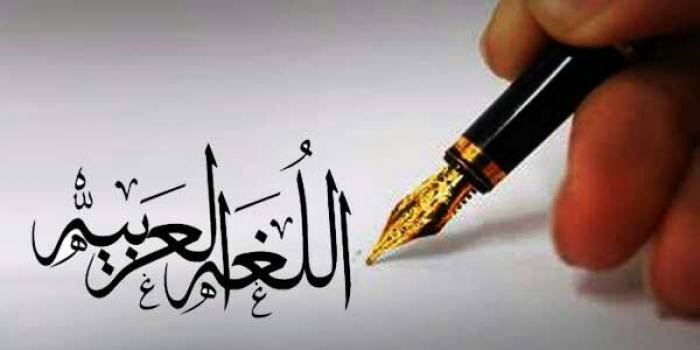 اللُغه العربيه